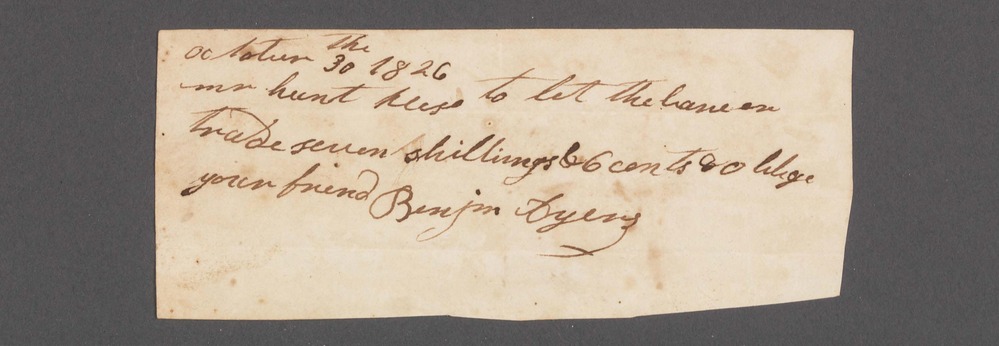 october the 30 1826
mr hunt plese to let the barer
trade seven shillings & 6 cents & oblige
your friend Benjm Ayers